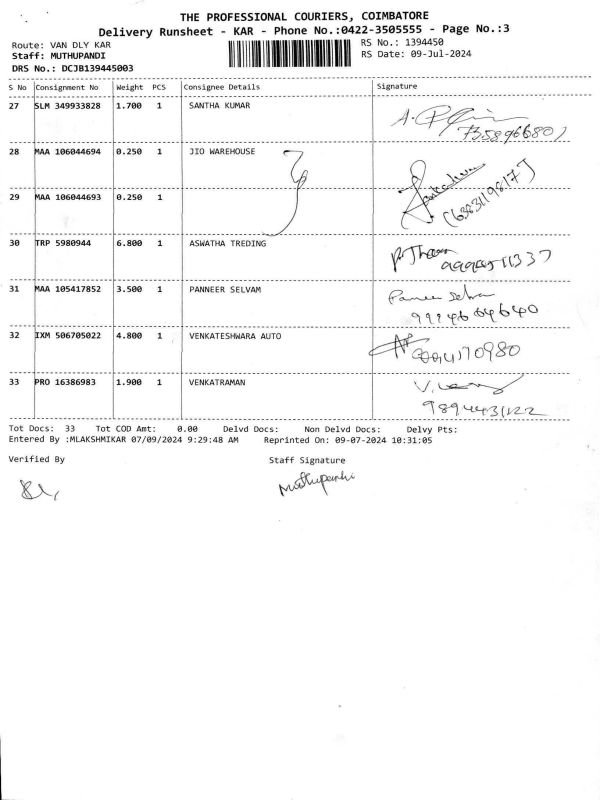 THE PROFESSIONAL COURIERS, COIMBATORE
Delivery Runsheet - KAR - Phone No.:0422-3505555 - Page No.:3
Route: VAN DLY KAR
RS No.: 1394450
Staff: MUTHUPANDI
RS Date: 09-Jul-2024
DRS No.: DCJB139445003
S No Consignment No Weight PCS Consignee Details Signature
27 SLM 349933828 1.700 1 SANTHA KUMAR
28 MAA 106044694 0.250 1 JIO WAREHOUSE
29 MAA 106044693 0.250 1
30 TRP 5980944 6.800 1 ASWATHA TREDING
31 MAA 105417852 3.500 1 PANNEER SELVAM
Panneer Selva
32 IXM 506705022 4.800 1 VENKATESHWARA AUTO
33 PRO 16386983 1.900 1 VENKATRAMAN
Tot Docs: 33 Tot COD Amt: 0.00 Delvd Docs: Non Delvd Docs: Delvy Pts:
Entered By :MLAKSHMIKAR 07/09/2024 9:29:48 AM Reprinted On: 09-07-2024 10:31:05
Verified By Staff Signature
Muthupandi